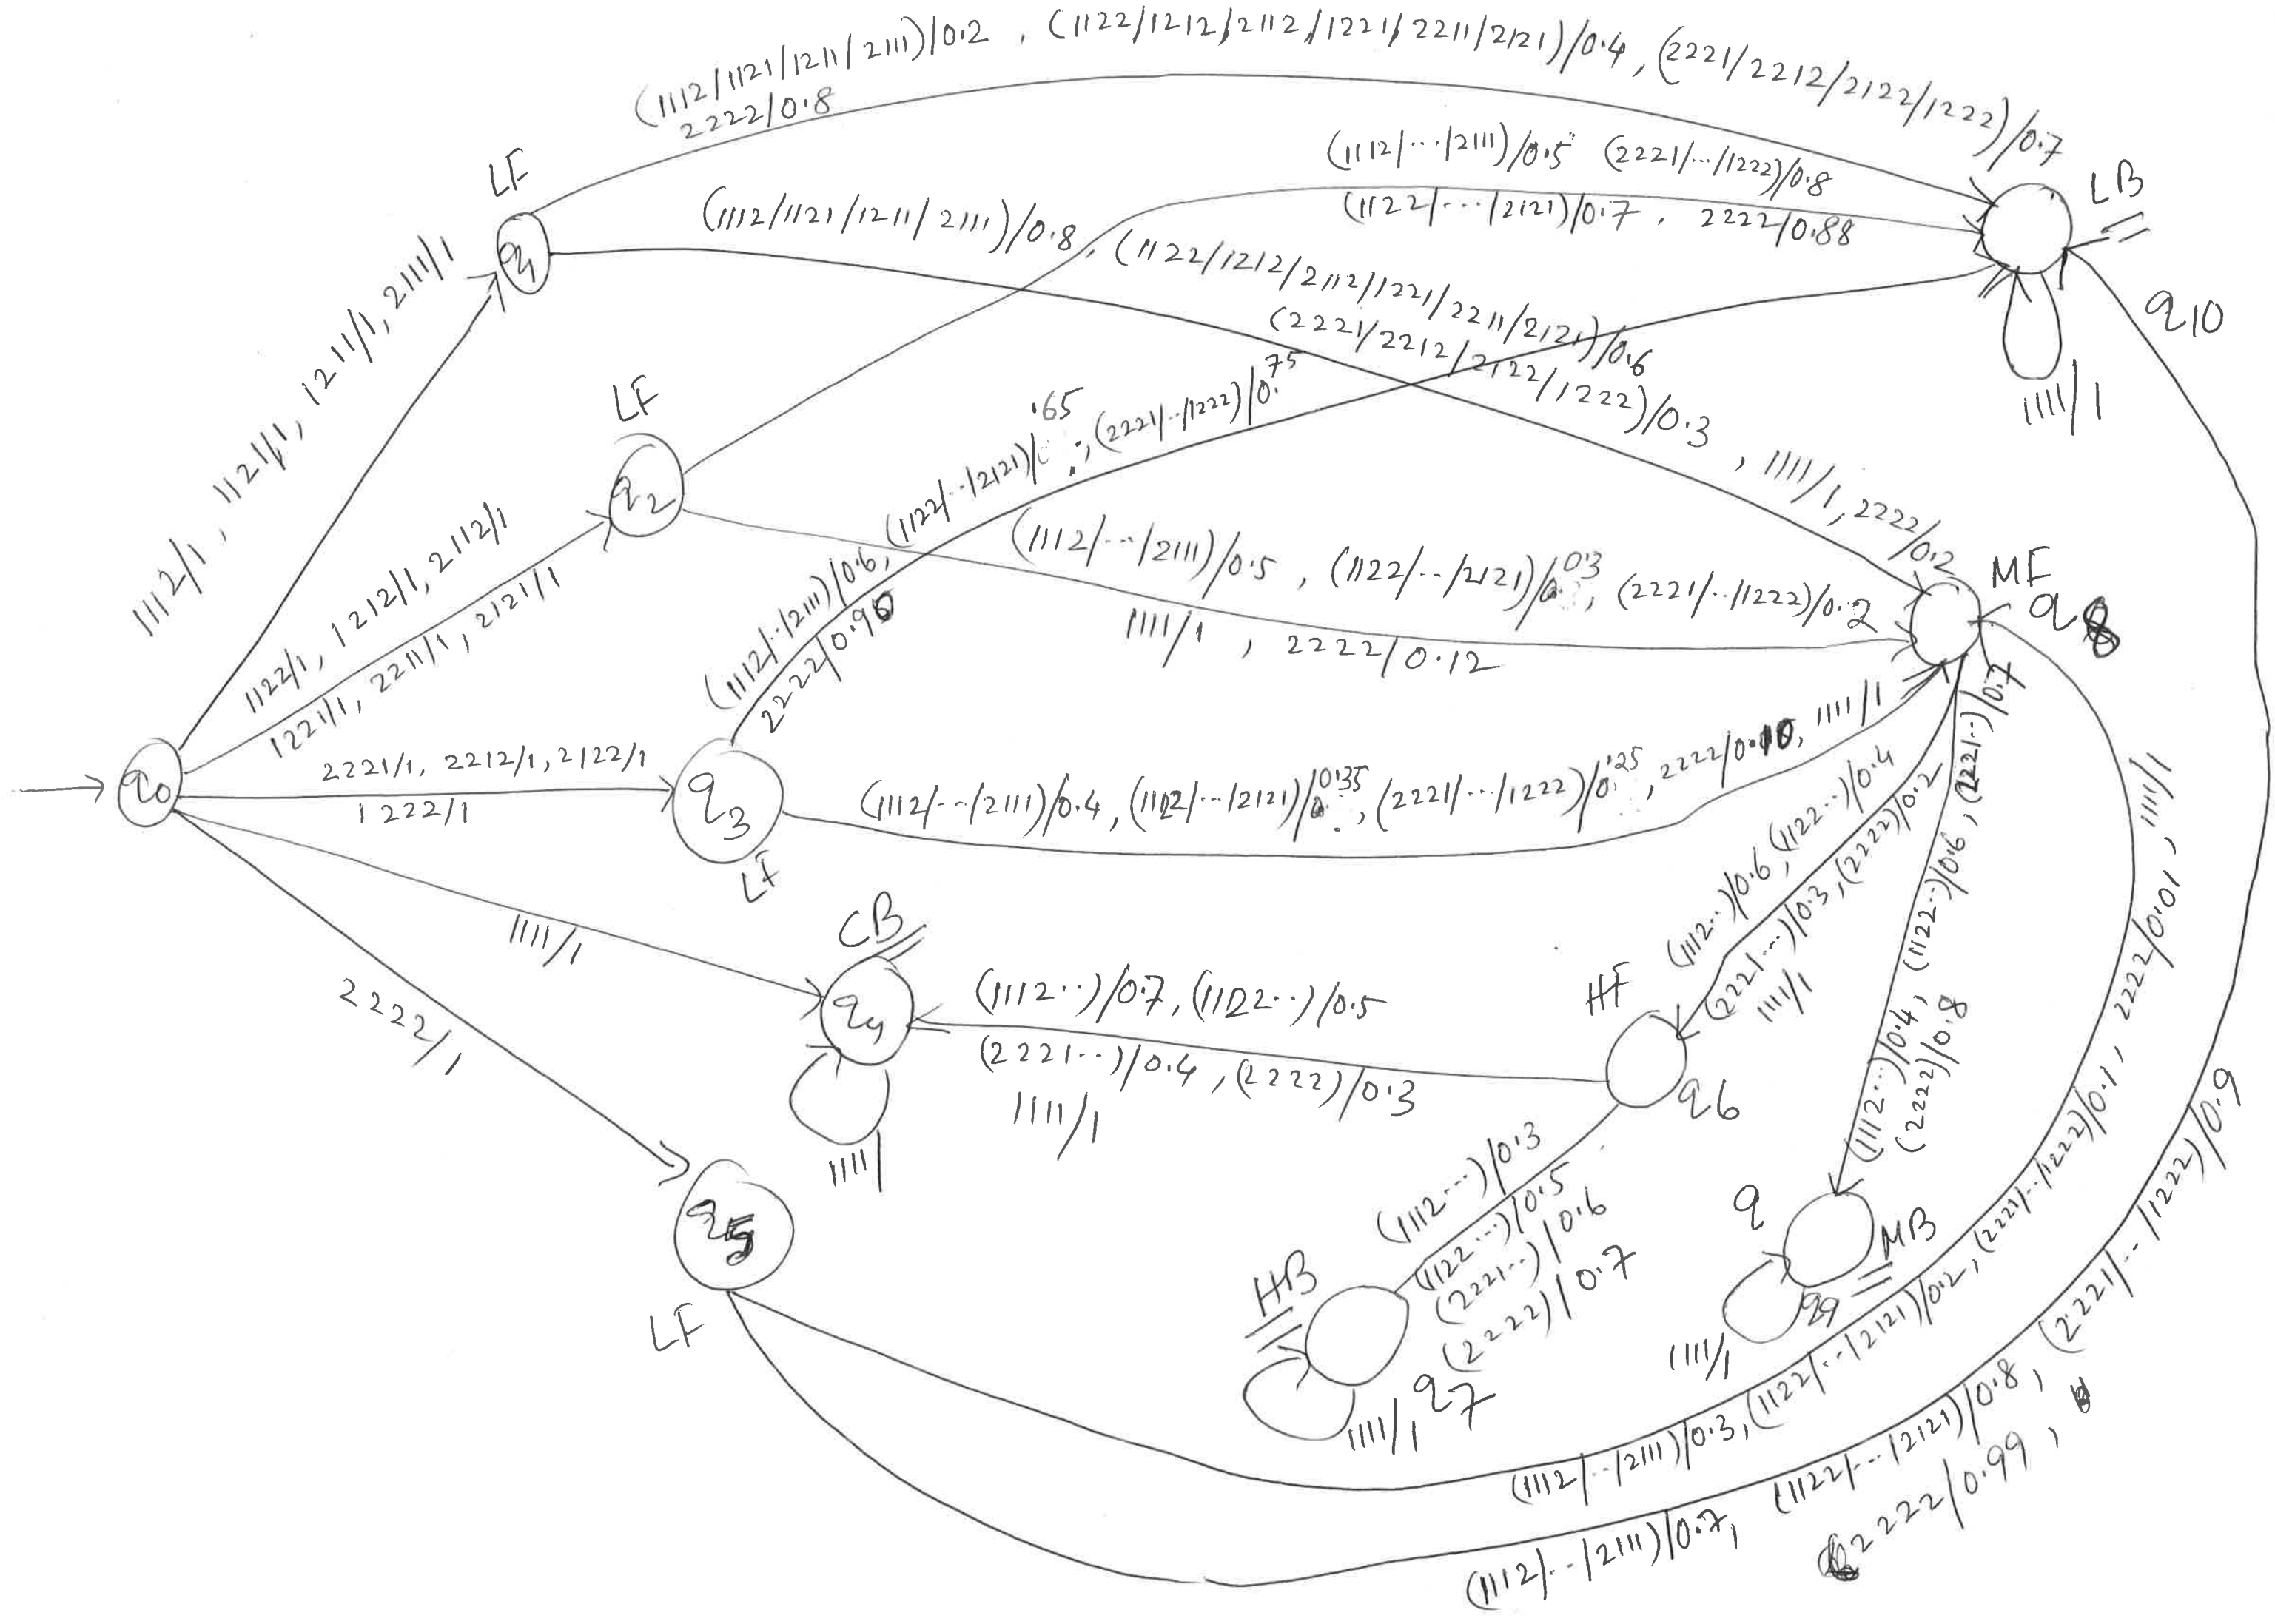 (1112/1121/1211/2111)/0.2 , (1122/1212/2112/1221/2211/2121)/0.4 , (2221/2212/2122/1222)/0.7
2222/0.8
LF
q1
(1112/…/2111)/0.5 (2221/../1222)/0.8
(1122/…/2121)/0.7 . 2222/0.88
LB
q10
1111/1
(1112/1121/1211/2111)/0.8 , (1122/1212/2112/1221/2211/2121)/0.6
(2221/2212/2122/1222)/0.3 , 1111/1, 2222/0.2
1112/1 , 1121/1, 1211/1, 2111/1
LF
q2
1122/1, 1212/1, 2112/1
1221/1, 2211/1, 2121/1
(1112/..2111)/0.6, (1122/..2121)/.65 ; (2221/..1222)/0.75
2222/0.90
(1112/--/2111)/0.5 , (1122/../2121)/0.3 , (2221/../1222)/0.2
1111/1 , 2222/0.12
MF
q8
q0
2221/1, 2212/1, 2122/1
1222/1
q3
LF
(1112/--/2111)/0.4, (1122/../2121)/0.35, (2221/../1222)/0.25, 2222/0.10, 1111/1
(1112..)/0.6, (1122..)/0.4
(2221...)/0.3, (2222)/0.2
1111/1
(1112...)/0.4, (1122..)/0.6, (2221..)/0.7
(2222)/0.8
1111/1
2222/1
CB
q4
1111/
(1112..)/0.7, (1122..)/0.5
(2221..)/0.4, (2222)/0.3
1111/1
HF
q6
(1112...)/0.3
(1122...)/0.5
(2221..)/0.6
(2222)/0.7
HB
q7
1111/1
q
MB
q9
1111/1
q5
LF
(1112/../2111)/0.3, (1122/../2121)/0.2, (2221/../1222)/0.1, 2222/0.01, 1111/1
(1112/../2111)/0.7, (1122/.../2121)/0.8, (2221/.../1222)/0.9
2222/0.99,